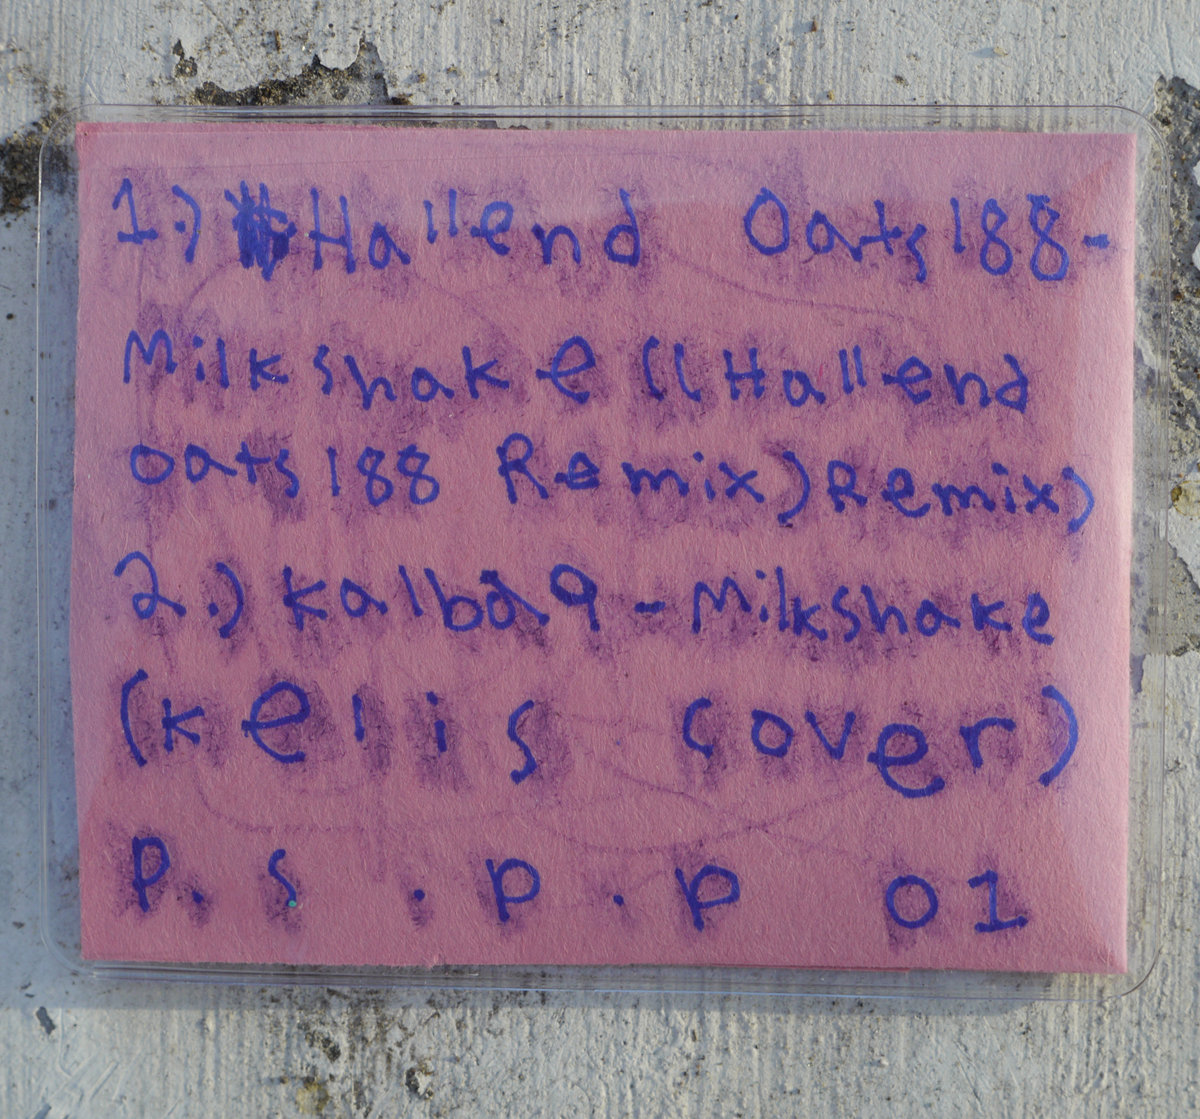 1.) Hallend Oats188-
Milkshake ((Hallend
oats188 Remix) Remix)
2.) kalbd9 - Milkshake
(kelis cover)
P.S.P.P 01